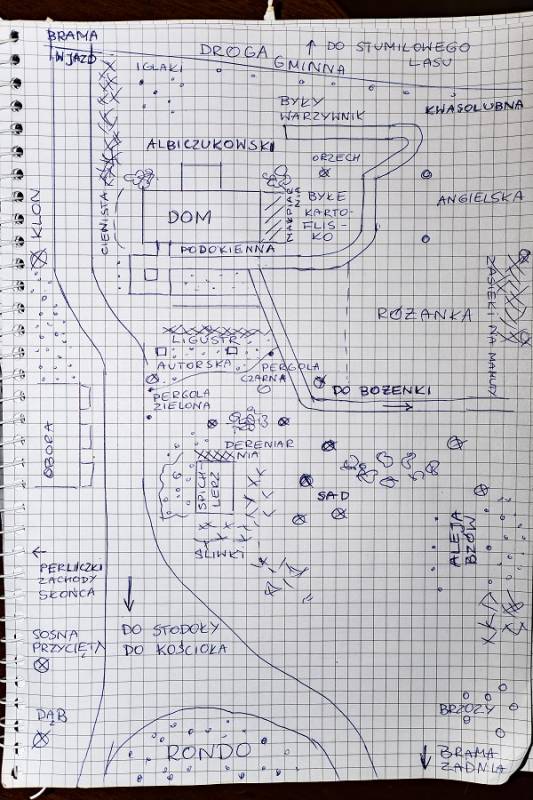 BRAMA
WJAZD
DROGA
GMINNA
↑ DO STUMILOWEGO
LASU
IGLAKI
BYŁY
WARZYWNIK
KWASOLUBNA
ALBICZUKOWSKI
ORZECH
KLON
CIENISTA
DOM
BYŁE
KARTO-
FLIS-
KO
ANGIELSKA
PODOKIENNA
RÓŻANKA
ZASIEKI NA MAMUTY
LIGUSTR
AUTORSKA
PERGOLA
CZARNA
PERGOLA
ZIELONA
DO BOŻENKI
→
OBORA
DERENIAR
NIA
SPICH-
LERZ
SAD
ŚLIWKI
ALEJA
BZÓW
←
PERLICZKI
ZACHODY
SŁOŃCA
SOSNA
PRZYCIĘTA
DO STODOŁY
DO KOŚCIOŁA
DĄB
RONDO
BRZOZY
↓ BRAMA
ZADNIA